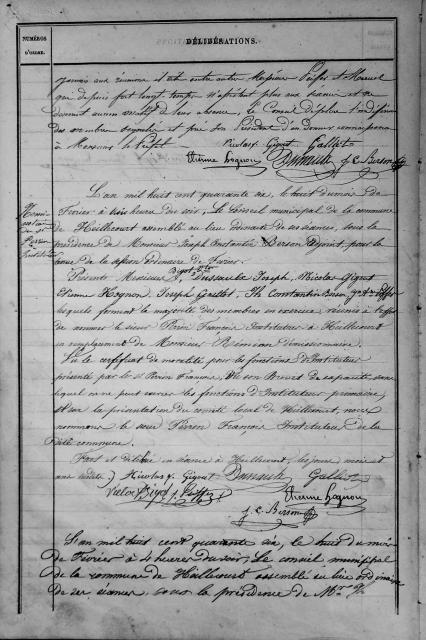 NUMÉROS
D'ORDRE.
DÉLIBÉRATIONS.
jamais aux réunions et
qui depuis fort longtemps n'assistent plus aux séances et ne
donnent aucun motif de leur absence, le Conseil déplore
des membres et prie son Président d'en donner connaissance
à Monsieur le Préfet. Nicolas Gigout Galliot
Etienne Hognon Dussaulx J. C. Berson
L'an mil huit cent quarante six, le huit du mois de
Février à trois heures du soir, Le Conseil municipal de la commune
de Haillecourt assemblé au lieu ordinaire de ses séances, sous la
présidence de Monsieur Joseph Constantin Berson Adjoint, pour la
tenue de la session ordinaire de Février.
Présents Messieurs Dussaulx Joseph, Nicolas Gigout
Etienne Hognon, Joseph Galliot, Constantin Berson,
lesquels forment la majorité des membres en exercice, réunis à l'effet
de nommer le sieur Perin François Instituteur à Haillecourt
en remplacement de Monsieur démissionnaire.
Vu le certificat de moralité pour les fonctions d'Instituteur
présenté par le Sr Perin François, et son Brevet de capacité, sans
lequel on ne peut exercer les fonctions d'Instituteur primaire,
et sur la présentation du comité local de Haillecourt, nous
nommons le sieur Perin François Instituteur de la
dite commune.
Fait et délibéré en séance à Haillecourt, les jour, mois et
an susdits. Nicolas Gigout Dussaulx Galliot
Victor Etienne Hognon
J. C. Berson
L'an mil huit cent quarante six, le huit du mois
de Février à 4 heures du soir, Le conseil municipal
de la commune de Haillecourt assemblé au lieu ordinaire
de ses séances sous la présidence de Mr